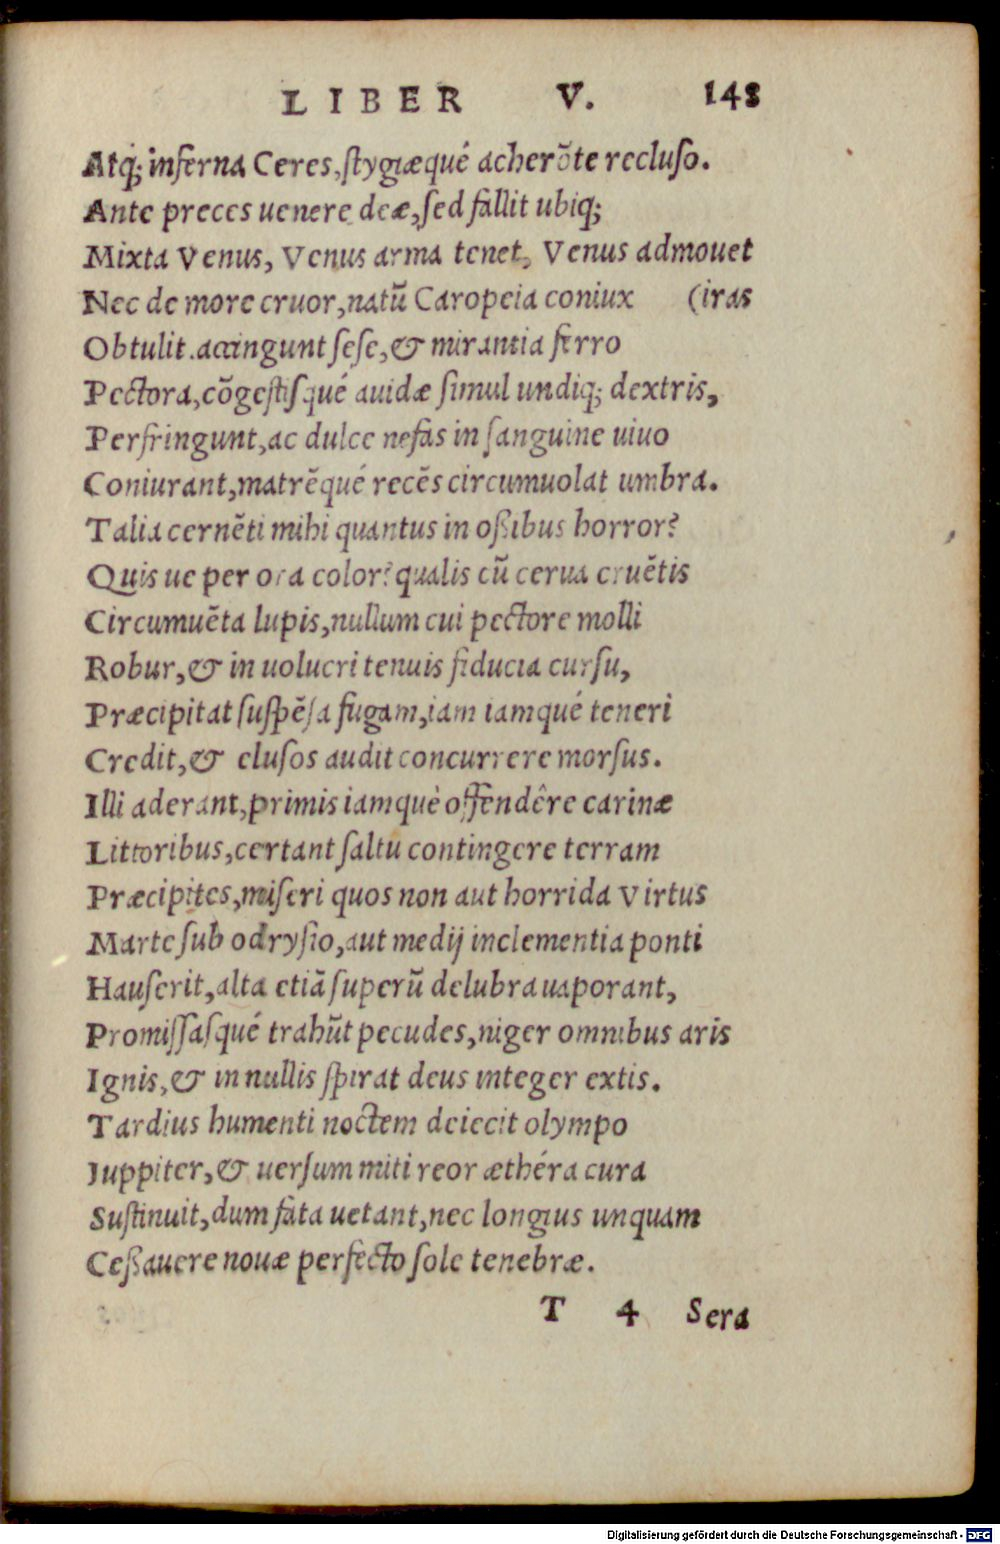 LIBER V. 148
Atq; inferna Ceres, stygiæqué acherōte recluso.
Ante preces uenere deæ, sed fallit ubiq;
Mixta Venus, Venus arma tenet, Venus admouet
Nec de more cruor, natū Caropeia coniux (iras
Obtulit. accingunt sese, & mirantia ferro
Pectora, cōgestisqué auidæ simul undiq; dextris,
Perfringunt, ac dulce nefas in sanguine uiuo
Coniurant, matrēqué recēs circumuolat umbra.
Talia cernēti mihi quantus in oßibus horror?
Quis ue per ora color? qualis cū cerua cruētis
Circumuēta lupis, nullum cui pectore molli
Robur, & in uolucri tenuis fiducia cursu,
Præcipitat suspēsa fugam, iam iamqué teneri
Credit, & elusos audit concurrere morsus.
Illi aderant, primis iamquè offendêre carinæ
Littoribus, certant saltu contingere terram
Præcipites, miseri quos non aut horrida Virtus
Marte sub odrysio, aut medij inclementia ponti
Hauserit, alta etiā superū delubra uaporant,
Promissasqué trahūt pecudes, niger omnibus aris
Ignis, & in nullis spirat deus integer extis.
Tardius humenti noctem deiecit olympo
Iuppiter, & uersum miti reor æthéra cura
Sustinuit, dum fata uetant, nec longius unquam
Ceßauere nouæ perfecto sole tenebræ.
T 4 Sera
Digitalisierung gefördert durch die Deutsche Forschungsgemeinschaft - DFG